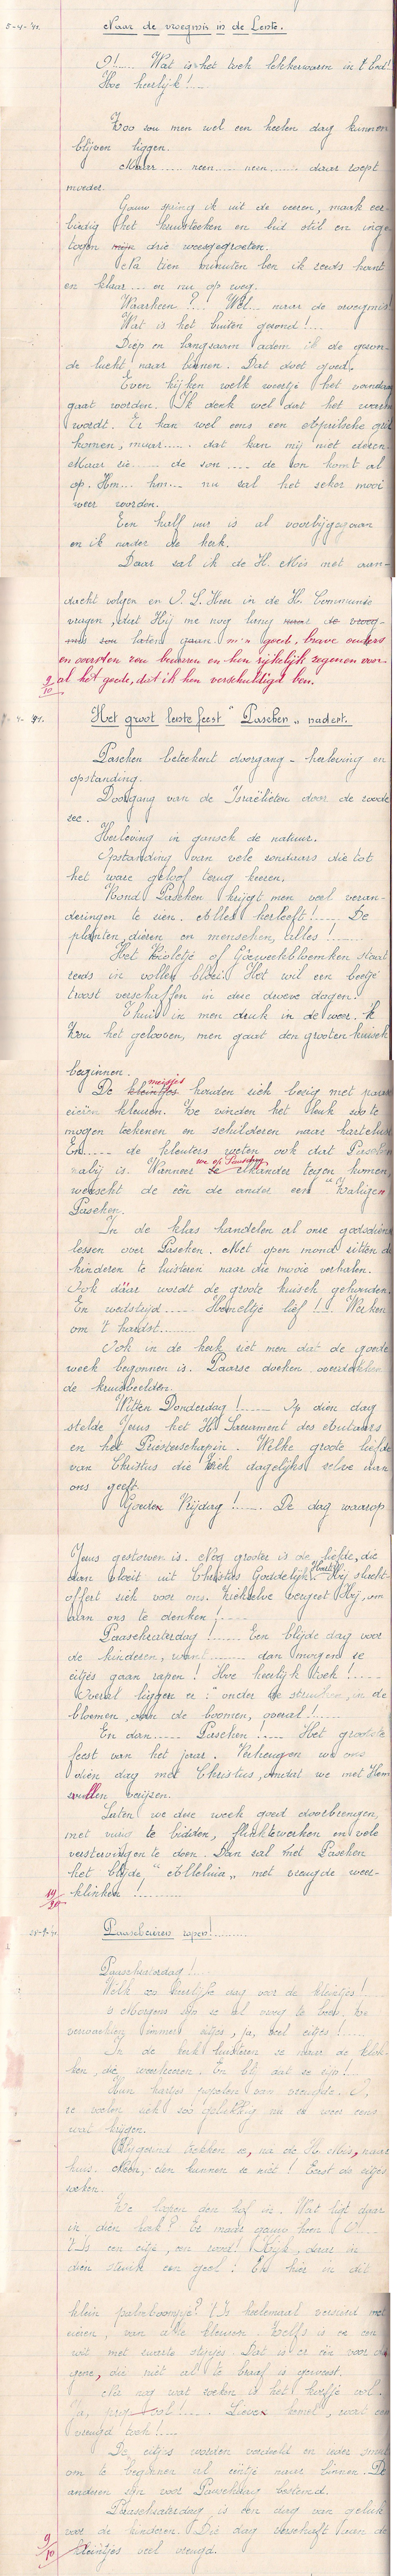 5-4-'41.
Naar de vroegmis in de Lente.
O!..... Wat is het toch lekkerwarm in 't bed!
Hoe heerlijk!.....
Zoo zou men wel een heelen dag kunnen
blijven liggen.
Maar...... neen..... neen....... daar roept
moeder.
Gauw spring ik uit de veeren, maak eer-
biedig het kruisteeken en bid stil en inge
togen mijn drie weesgegroeten.
Na tien minuten ben ik reeds kant
en klaar.... en nu op weg.
Waarheen?.... Wel... naar de vroegmis!
Wat is het buiten gezond!....
Diep en langzaam adem ik de gezon-
de lucht naar binnen. Dat doet goed.
Even kijken welk weertje het vandaag
gaat worden. Ik denk wel dat het warm
wordt. Er kan wel eens een Aprilsche gril
komen, maar...... dat kan mij niet deren.
Maar zie...... de zon.... de zon komt al
op. Hm... hm.... nu zal het zeker mooi
weer worden.
Een half uur is al voorbijgegaan
en ik nader de kerk.
Daar zal ik de H. Mis met aan-
dacht volgen en O. L. Heer in de H. Communie
vragen, dat Hij me nog lang naar de vroeg-
mis zou laten gaan. m'n goede, brave ouders
en voorsten zou bewaren en hen rijkelijk zegenen voor
al het goede, dat ik hen verschuldigd ben.
9/10
Het groot lente feest "Paschen" nadert.
Paschen beteekent doorgang - herleving en
opstanding.
Doorgang van de Israëlieten door de roode
zee.
Herleving in gansch de natuur.
Opstanding van vele zondaars die tot
het ware geloof terug keeren.
Rond Paschen krijgt men veel veran-
deringen te zien. Alles herleeft!..... De
planten, dieren en menschen, alles!.......
Het Viooltje of Goeweekbloemken staat
reeds in vollen bloei. Het wil een beetje
troost verschaffen in deze droeve dagen.
Thuis is men druk in de weer. 'k
Zou het gelooven, men gaat den grooten kuisch
beginnen.
De kleintjes meisjes houden zich bezig met paasch
eieren kleuren. Ze vinden het leuk zoo te
mogen teekenen en schilderen naar hartelust.
En..... de kleuters weten ook dat Paschen
nabij is. Wanneer ze elkander tegen komen,
wenscht de een de ander een "Zaligen
Paschen.
In de klas handelen al onze godsdienst
lessen over Paschen. Met open mond zitten de
kinderen te luisteren naar die mooie verhalen.
Ook dáár wordt de groote kuisch gehouden.
En wedstrijd..... Hemeltje lief!.... Werken
om 't hardst.........
Ook in de kerk ziet men dat de goede
week begonnen is. Paarse doeken overdekken
de kruisbeelden.
Witten Donderdag!..... Op dien dag
stelde Jezus het H. Sacrament des Autaars
en het Priesterschap in. Welke groote liefde
van Christus die Zich dagelijks zelve aan
ons geeft.
Goeden Vrijdag!..... De dag waarop
Jezus gestorven is. Nog grooter is de liefde, die
dan vloeit uit Christus Goddelijk Hart. Hij slacht-
offert zich voor ons. Zichzelve vergeet Hij, om
aan ons te denken!.....
Paaschzaterdag!...... Een blijde dag voor
de kinderen, want......... dan mogen ze
eitjes gaan rapen! Hoe heerlijk toch!.....
Overal liggen er: onder de struiken, in de
bloemen, aan de boomen, overal!.....
En dan..... Paschen!..... Het grootste
feest van het jaar. Verheugen we ons
dien dag met Christus, omdat we met Hem
zullen verijzen.
Laten we deze week goed doorbrengen,
met vurig te bidden, flink te werken en vele
verstervingen te doen. Dan zal met Paschen
het blijde "Alleluia" met vreugde weer-
klinken!............
14/20
Paascheieren rapen!..........
Paaschzaterdag!....
Welk zoo heerlijke dag voor de kleintjes!
's Morgens zijn ze al vroeg te been. Ze
verwachten immers eitjes, ja, veel eitjes!....
In de kerk luisteren ze naar de klok-
ken, die weerkeeren. En blij dat ze zijn!...
Hun hartjes popelen van vreugde. O,
ze voelen zich zoo gelukkig nu ze weer eens
wat krijgen.
Blijgezind trekken ze, na de H. Mis, naar
huis. Neen, eten kunnen ze niet! Eerst de eitjes
zoeken.
Ze loopen den hof in. Wat ligt daar
in dien hoek? Er maar gauw heen. O!...
't Is een eitje, een rood! Kijk, daar in
dien struik een geel! En hier in dit
klein palmboompje? 't Is heelemaal versierd met
eieren, van alle kleuren. Zelfs is er een
wit met zwarte stipjes. Dat is er een voor de
gene, die niet al te braaf is geweest.
Nu nog wat zoeken is het korfje vol.
Ja, vol!..... Lieve hemel, wat een
vreugd toch!....
De eitjes worden verdeeld en ieder smult
om te beginnen al eentje naar binnen. De
anderen zijn voor Paaschdag bestemd.
Paaschzaterdag is een dag van geluk
voor de kinderen. Die dag verschaft aan de
kleintjes veel vreugd.
9/10